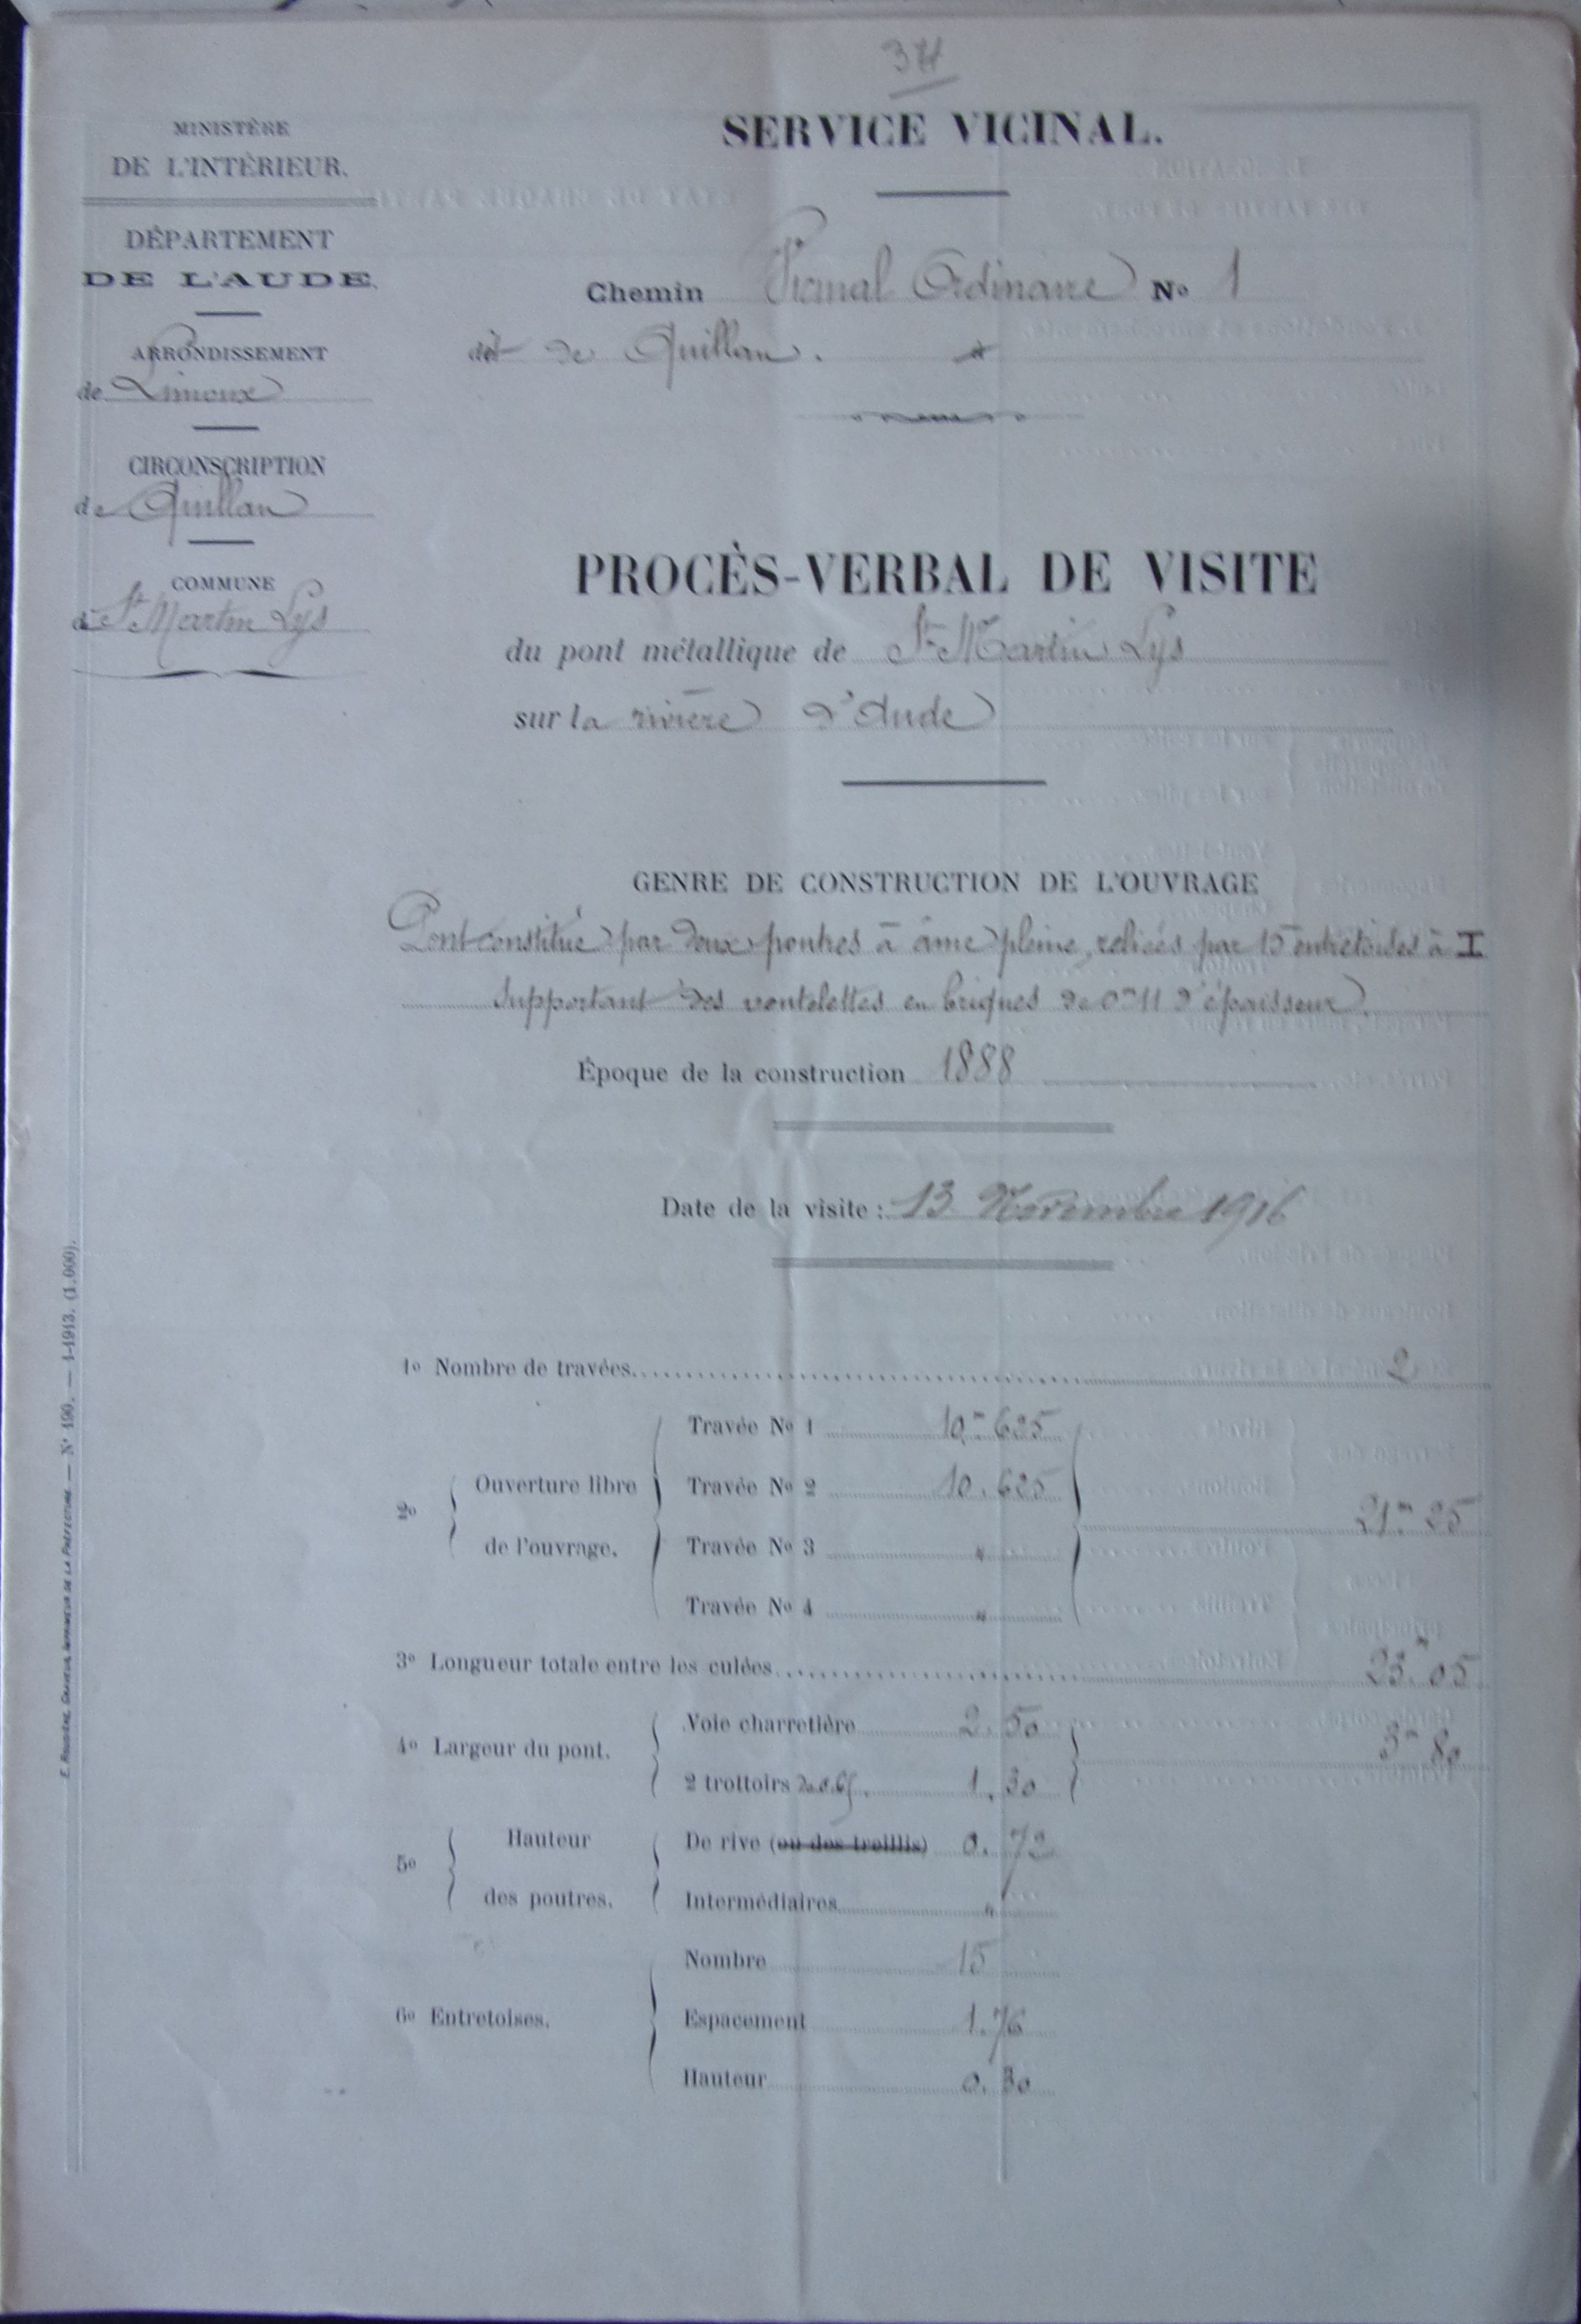 34
MINISTÈRE
DE L'INTÉRIEUR.
DÉPARTEMENT
DE L'AUDE.
ARRONDISSEMENT
de Limoux
CIRCONSCRIPTION
de Quillan
COMMUNE
de St Martin Lys
SERVICE VICINAL.
Chemin Vicinal Ordinaire No 1
dit de Quillan.
PROCÈS-VERBAL DE VISITE
du pont métallique de St Martin Lys
sur la rivière d'Aude
GENRE DE CONSTRUCTION DE L'OUVRAGE
Pont constitué par deux poutres à âme pleine, reliées par 15 entretoises à I
supportant des voutelettes en briques de 0m11 d'épaisseur.
Époque de la construction 1888
Date de la visite : 13 Novembre 1916
1o Nombre de travées 2
2o Ouverture libre de l'ouvrage.
Travée No 1 10m 625
Travée No 2 10. 625
Travée No 3 "
Travée No 4 "
21m 25
3o Longueur totale entre les culées 23m 05
4o Largeur du pont.
Voie charretière 2. 50
2 trottoirs de 0.65. 1. 30
3m 80
5o Hauteur des poutres.
De rive (ou des treillis) 0. 72
Intermédiaires "
6o Entretoises.
Nombre 15
Espacement 1.76
Hauteur 0. 30
No 190. — 1-1913. (1.000).